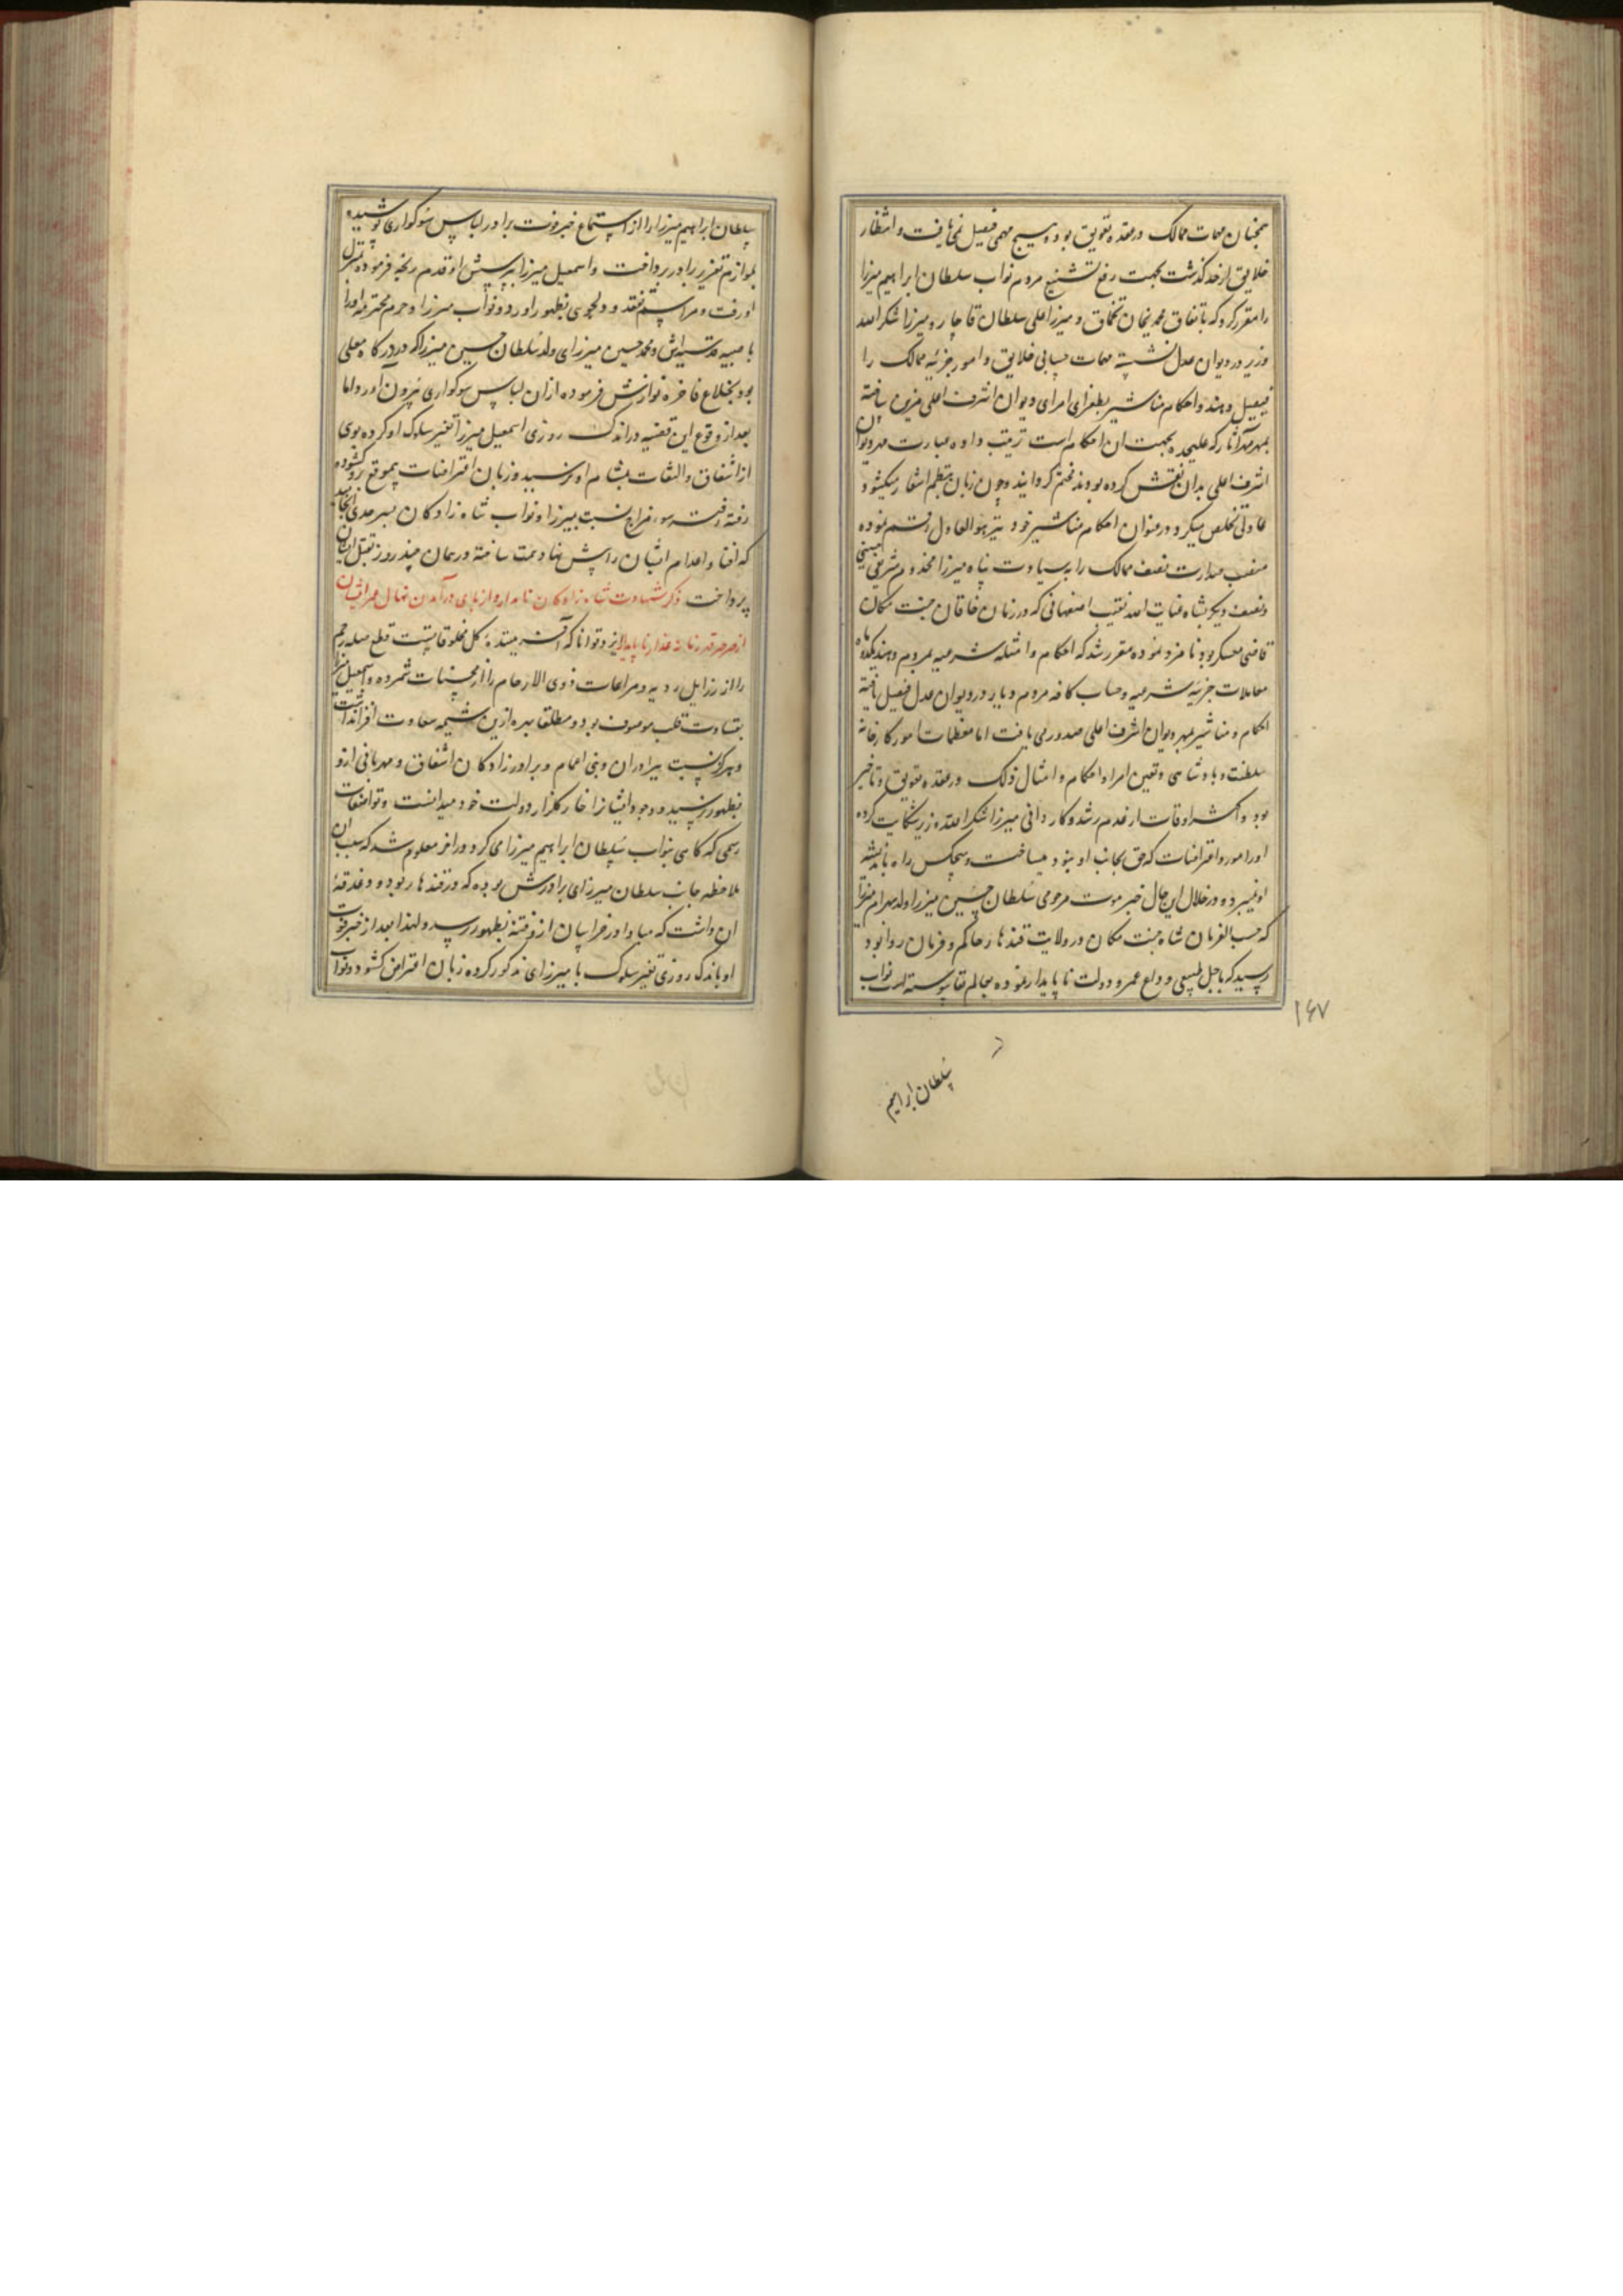 همچنان مهمات ممالک در عقده تعویق بود و هیچ مهمی فیصل نمی‌یافت و انتظار
خلایق از حد گذشت بجهت رفع تشنیع مردم نواب سلطان ابراهیم میرزا
را مقرر کرد که باتفاق محمدیخان تخماق و میرزا علی سلطان قاجار و میرزا شکرالله
وزیر در دیوان عدل نشسته مهمات حسابی خلایق و امور جزئیه ممالک را
فیصل دهند و احکام مناشیر بطغرای امرای دیوان اشرف اعلی مزین یافته
بمهر مهرآثار که علیحده بجهت آن احکام است ترتیب داده عبارت مهر دیوان
اشرف اعلی بدان نقش کرده بودند مختم گردانید و چون زبان بنظم اشعار میگشود
عادلی تخلص میکرد و در عنوان احکام مناشیر خود نیز هو العادل رقم نموده
منصب صدارت نصف ممالک را به سیادت پناه میرزا مخدوم شریفی حسینی
و نصف دیگر بشاه عنایت الله نقیب اصفهانی که در زمان خاقان جنت مکان
قاضی معسکر بود نامزد نموده مقرر شد که احکام و امثله شرعیه بمردم دهند یکدو ماه
معاملات جزئیه شرعیه و حساب کافه مردم دیار در دیوان عدل فیصل یافته
احکام و مناشیر بمهر دیوان اشرف اعلی صدور می یافت اما معظمات امور کارخانه
سلطنت و پادشاهی و تعیین امرا و احکام و امثال ذلک در عقده تعویق و تاخیر
بود و اکثر اوقات از عدم رشد و کاردانی میرزا شکرالله وزیر شکایت کرده
اورا مورد اعتراضات که حق بجانب او نبود میساخت و هیچکس راه باندیشه
او نمیبرد و در خلال این حال خبر موت مرحومی سلطان حسین میرزا ولد بهرام میرزا
که حسب الفرمان شاه جنت مکان در ولایت قندهار حاکم و فرمان روا بود
رسید که باجل طبیعی وداع عمر و دولت ناپایدار نموده بعالم بقا پیوسته است نواب
۱۶۷
سلطان ابراهیم
سلطان ابراهیم میرزا را از استماع خبر فوت برادر لباس سوگواری پوشیده
بلوازم تعزیر برادر پرداخت و اسمعیل میرزا به پرسش او قدم رنجه فرموده بمنزل
او رفت و مراسم تفقد و دلجوی بظهور اورد و نواب میرزا و حرم محترمه اورا
با صبیه قدسیه‌اش و محمد حسین میرزای ولد سلطان حسین میرزا که در درگاه معلی
بود بخلاع فاخره نوازش فرموده از ان لباس سوگواری بیرون آورد اما
بعد از وقوع این قضیه در اندک روزی اسمعیل میرزا تغییر سلوک او کرده بوی
از اشفاق و التفات بمشام او نرسید و زبان اعتراضات بیموقع برو گشوده
رفته رفته سوء مزاج نسبت بمیرزا و نواب شاه زادکان بسرحدی انجامید
که افنا و اعدام ایشان را پیش نهاد همت ساخته در همان چند روز بقتل ایشان
پرداخت ذکر شهادت شاه زادکان نامدار و از پای درآمدن نهال عمر ایشان
از صرصر قهر زمانه غدار ناپایدار ایزد توانا که آفریننده کل مخلوقاتست قطع صله رحم
را از رزایل ردیه و مراعات ذوی الارحام را از محسنات شمرده و اسمعیل میرزا
بقساوت قلب موصوف بود و مطلقا بهره ازین شیمه سعادت افزا نداشت
و هرگز نسبت ببرادران و بنی اعمام و برادرزادکان اشفاق و مهربانی ازو
بظهور نرسیده وجود ایشانرا خار گلزار دولت خود میدانست و تواضعات
رسمی که گاهی بنواب سلطان ابراهیم میرزا می کرد در اخر معلوم شد که سبب ان
ملاحظه جانب سلطان میرزای برادرش بوده که در قندهار بود و دغدغهٔ
ان داشت که مبادا در خراسان ازو فتنهٔ بظهور رسد و لهذا بعد از خبر فوت
او باندک روزی تغییر سلوک با میرزای مذکور کرده زبان اعتراض گشود و نواب